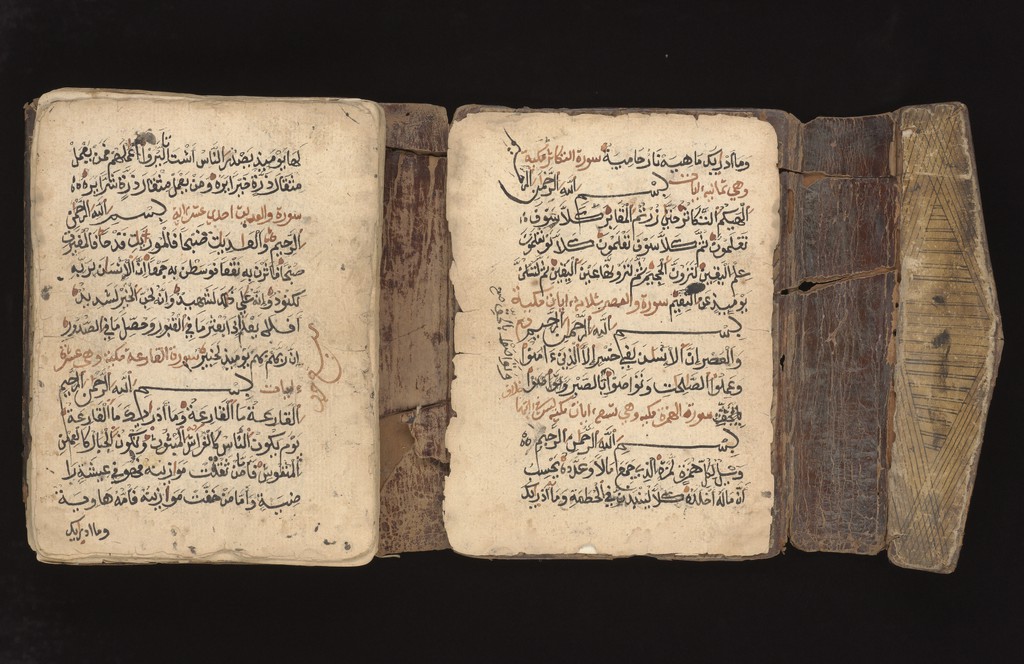 لها يومئذ يصدر الناس اشتاتا ليروا اعملهم فمن يعمل
مثقال ذرة خيرا يره ومن يعمل مثقال ذرة شرا يره
سورة والعديت احدى عشر اية بسم الله الرحمن
الرحيم والعديت ضبحا فالموريت قدحا فالمغيرت
صبحا فاثرن به نقعا فوسطن به جمعا ان الانسن لربه
لكنود وانه على ذلك لشهيد وانه لحب الخير لشديد
افلا يعلم اذا بعثر ما في القبور وحصل ما في الصدور
ان ربهم بهم يومئذ لخبير سورة القارعة مكية وهي عشرة
ءايات بسم الله الرحمن الرحيم
القارعة ما القارعة وما ادريك ما القارعة
يوم يكون الناس كالفراش المبثوث وتكون الجبال كالعهن
المنفوش فاما من ثقلت موازينه فهو في عيشة را
ضية واما من خفت موازينه فامه هاوية
وما ادريك
وما ادريك ماهيه نار حامية سورة التكاثر مكية
وهي ثمانية ايات بسم الله الرحمن الرحيم
الهيكم التكاثر حتى زرتم المقابر كلا سوف
تعلمون ثم كلا سوف تعلمون كلا لو تعلمون
علم اليقين لترون الجحيم ثم لترونها عين اليقين ثم لتسئلن
يومئذ عن النعيم سورة والعصر ثلاث ايات مكية
بسم الله الرحمن الرحيم
والعصر ان الانسن لفي خسر الا الذين ءامنوا
وعملوا الصلحت وتواصوا بالصبر
وتواصوا بالحق صح
سورة الهمزة مكية وهي تسع ايات
بسم الله الرحمن الرحيم
ويل لكل همزة لمزة الذي جمع مالا وعدده يحسب
ان ماله اخلده كلا لينبذن في الحطمة وما ادريك